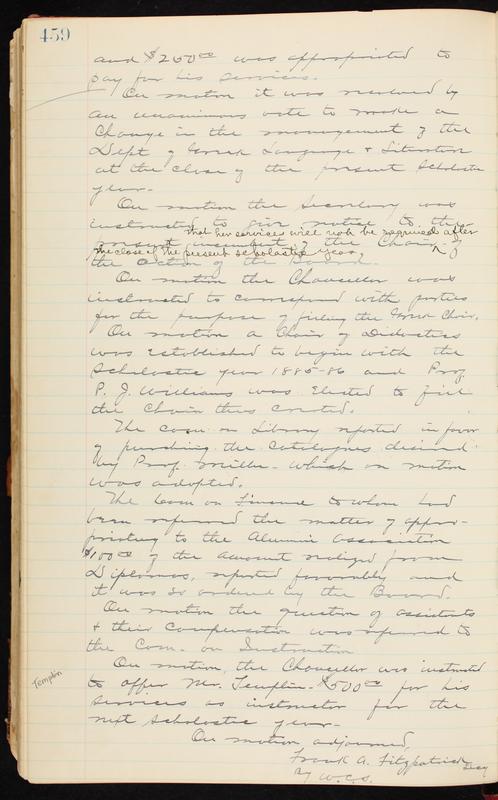 459
and $250.00 was appropriated to
pay for his services.
On motion it was resolved by
an unanimous vote to make a
change in the management of the
Dept of Greek Language & Literature
at the close of the present Scholastic
year-
On motion the Secretary was
instructed to give notice to the
that her services will not be required after
present incumbent of the Chair of
the close of the present scholastic year
the action of the Board.
On motion the Chancellor was
instructed to correspond with parties
for the purpose of filling the Greek Chair.
On motion a Chair of Didactics
was established to begin with the
Scholastic year 1885-86 and Prof
P. J. Williams was elected to fill
the Chair thus created.
The com. on Library reported in favor
of purchasing the catalogues desired
by Prof. Miller- which on motion
was adopted.
The Com on Finance to whom had
been referred the matter of appro-
priating to the Alumni Association
$100.00 of the amount realized from
Diplomas, reported favorably and
it was so ordered by the Board.
On motion the question of assistants
& their compensation was referred to
the Com. on Instruction
On motion, the Chancellor was instructed
Templin
to offer Mr. Templin $500.00 for his
services as instructor for the
next Scholastic year-
On motion adjourned,
Frank A. Fitzpatrick Secy
By W.C.S.